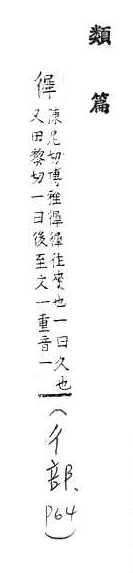 類篇
徲
陳尼切博雅徲徲往來也一曰久也
又田黎切一曰後至文一重音一
(彳部、P64)